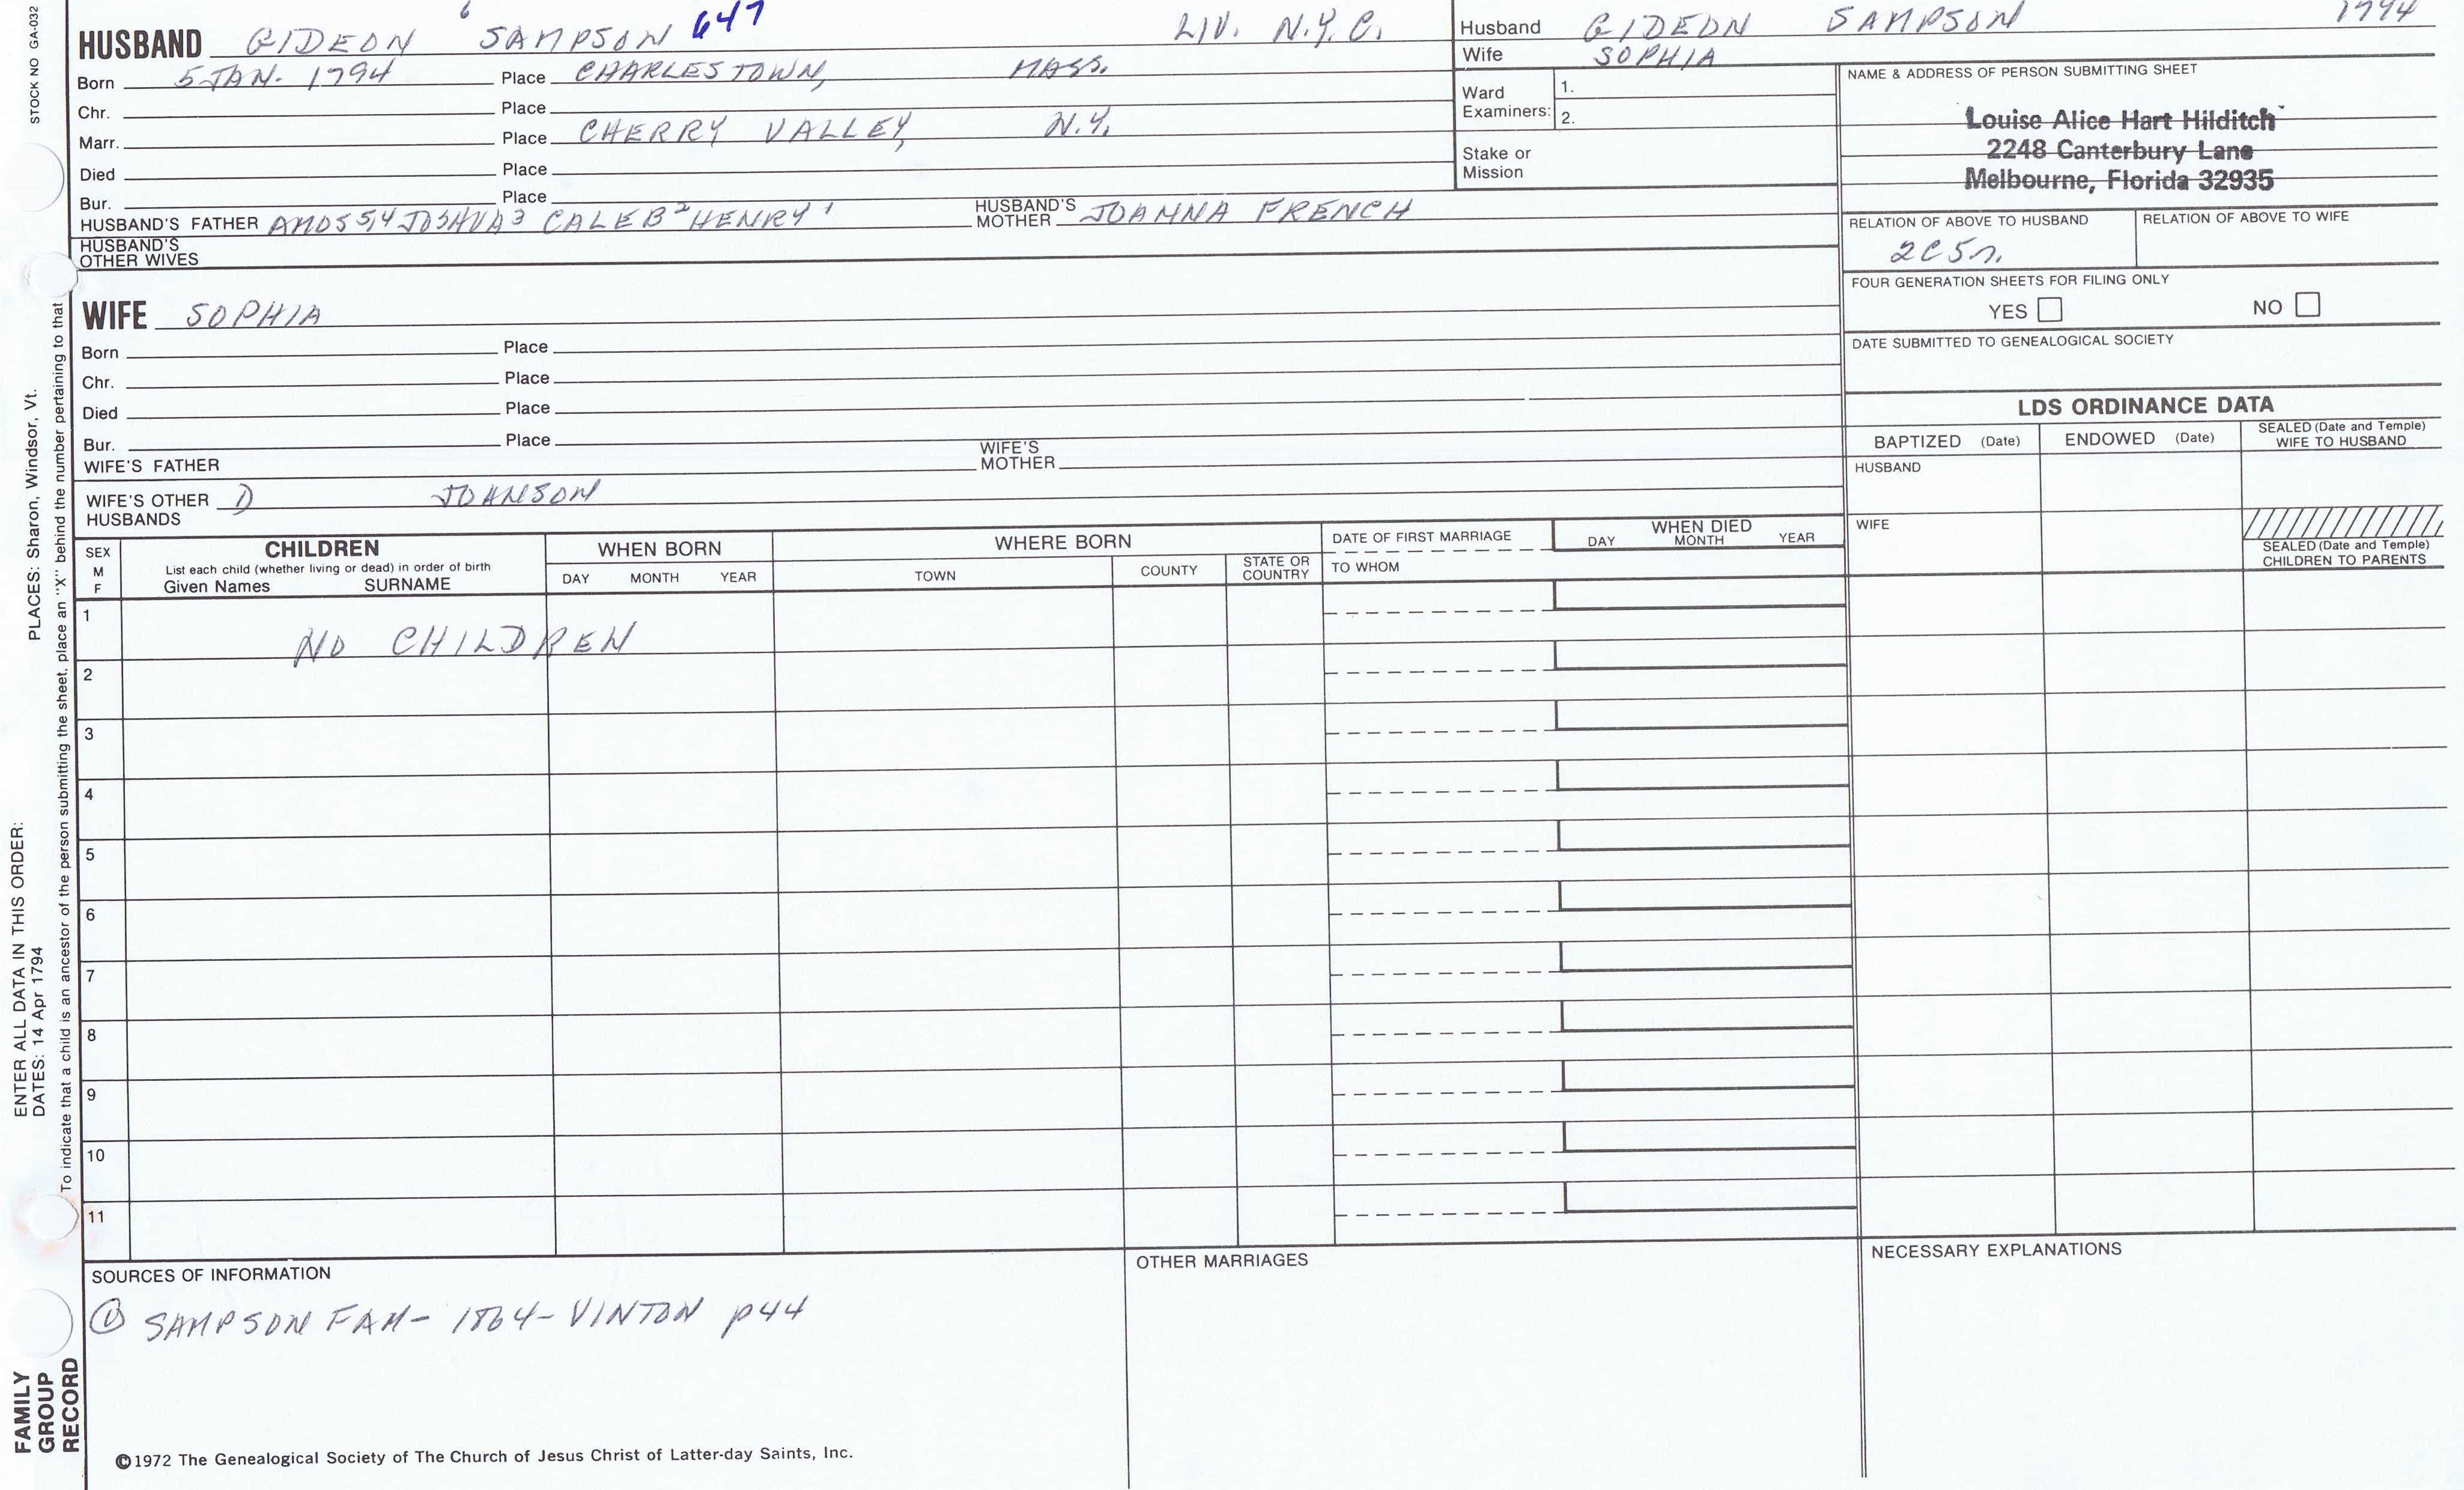 STOCK NO GA-032
HUSBAND GIDEON 6 SAMPSON 647 LIV. N.Y.C.
Born 5 JAN. 1794 Place CHARLESTOWN, MASS.
Chr. Place
Marr. Place CHERRY VALLEY, N.Y.
Died Place
Bur. Place
HUSBAND'S FATHER AMOS 5,4 JOSHUA 3 CALEB 2 HENRY 1 HUSBAND'S MOTHER JOANNA FRENCH
HUSBAND'S OTHER WIVES
WIFE SOPHIA
Born Place
Chr. Place
Died Place
Bur. Place
WIFE'S FATHER WIFE'S MOTHER
WIFE'S OTHER HUSBANDS D JOHNSON
Husband GIDEON SAMPSON 1794
Wife SOPHIA
Ward Examiners: 1.
2.
Stake or Mission
NAME & ADDRESS OF PERSON SUBMITTING SHEET
Louise Alice Hart Hilditch
2248 Canterbury Lane
Melbourne, Florida 32935
RELATION OF ABOVE TO HUSBAND RELATION OF ABOVE TO WIFE
2C5r.
FOUR GENERATION SHEETS FOR FILING ONLY
YES NO
DATE SUBMITTED TO GENEALOGICAL SOCIETY
LDS ORDINANCE DATA
BAPTIZED (Date) ENDOWED (Date) SEALED (Date and Temple) WIFE TO HUSBAND
HUSBAND
WIFE
SEALED (Date and Temple)
CHILDREN TO PARENTS
SEX M F CHILDREN WHEN BORN WHERE BORN DATE OF FIRST MARRIAGE WHEN DIED
List each child (whether living or dead) in order of birth
Given Names SURNAME DAY MONTH YEAR TOWN COUNTY STATE OR COUNTRY TO WHOM DAY MONTH YEAR
1 NO CHILDREN
2
3
4
5
6
7
8
9
10
11
SOURCES OF INFORMATION OTHER MARRIAGES NECESSARY EXPLANATIONS
① SAMPSON FAM- 1864- VINTON p44
©1972 The Genealogical Society of The Church of Jesus Christ of Latter-day Saints, Inc.
FAMILY
GROUP
RECORD
ENTER ALL DATA IN THIS ORDER:
DATES: 14 Apr 1794 PLACES: Sharon, Windsor, Vt.
To indicate that a child is an ancestor of the person submitting the sheet, place an "X" behind the number pertaining to that